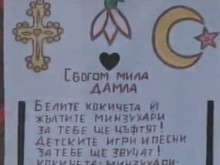 Сбогом мила
Дамла
Белите кокичета и
жълтите минзухари
за тебе ще цъфтят!
Детските игри и песни
за тебе ще звучат!
кокичета, минзухари